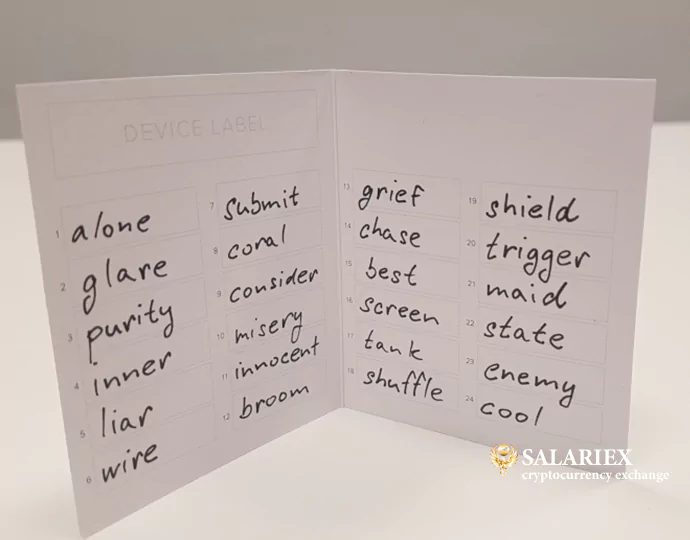 DEVICE LABEL
1 alone
2 glare
3 purity
4 inner
5 liar
6 wire
7 submit
8 coral
9 consider
10 misery
11 innocent
12 broom
13 grief
14 chase
15 best
16 screen
17 tank
18 shuffle
19 shield
20 trigger
21 maid
22 state
23 enemy
24 cool
SALARIEX
cryptocurrency exchange